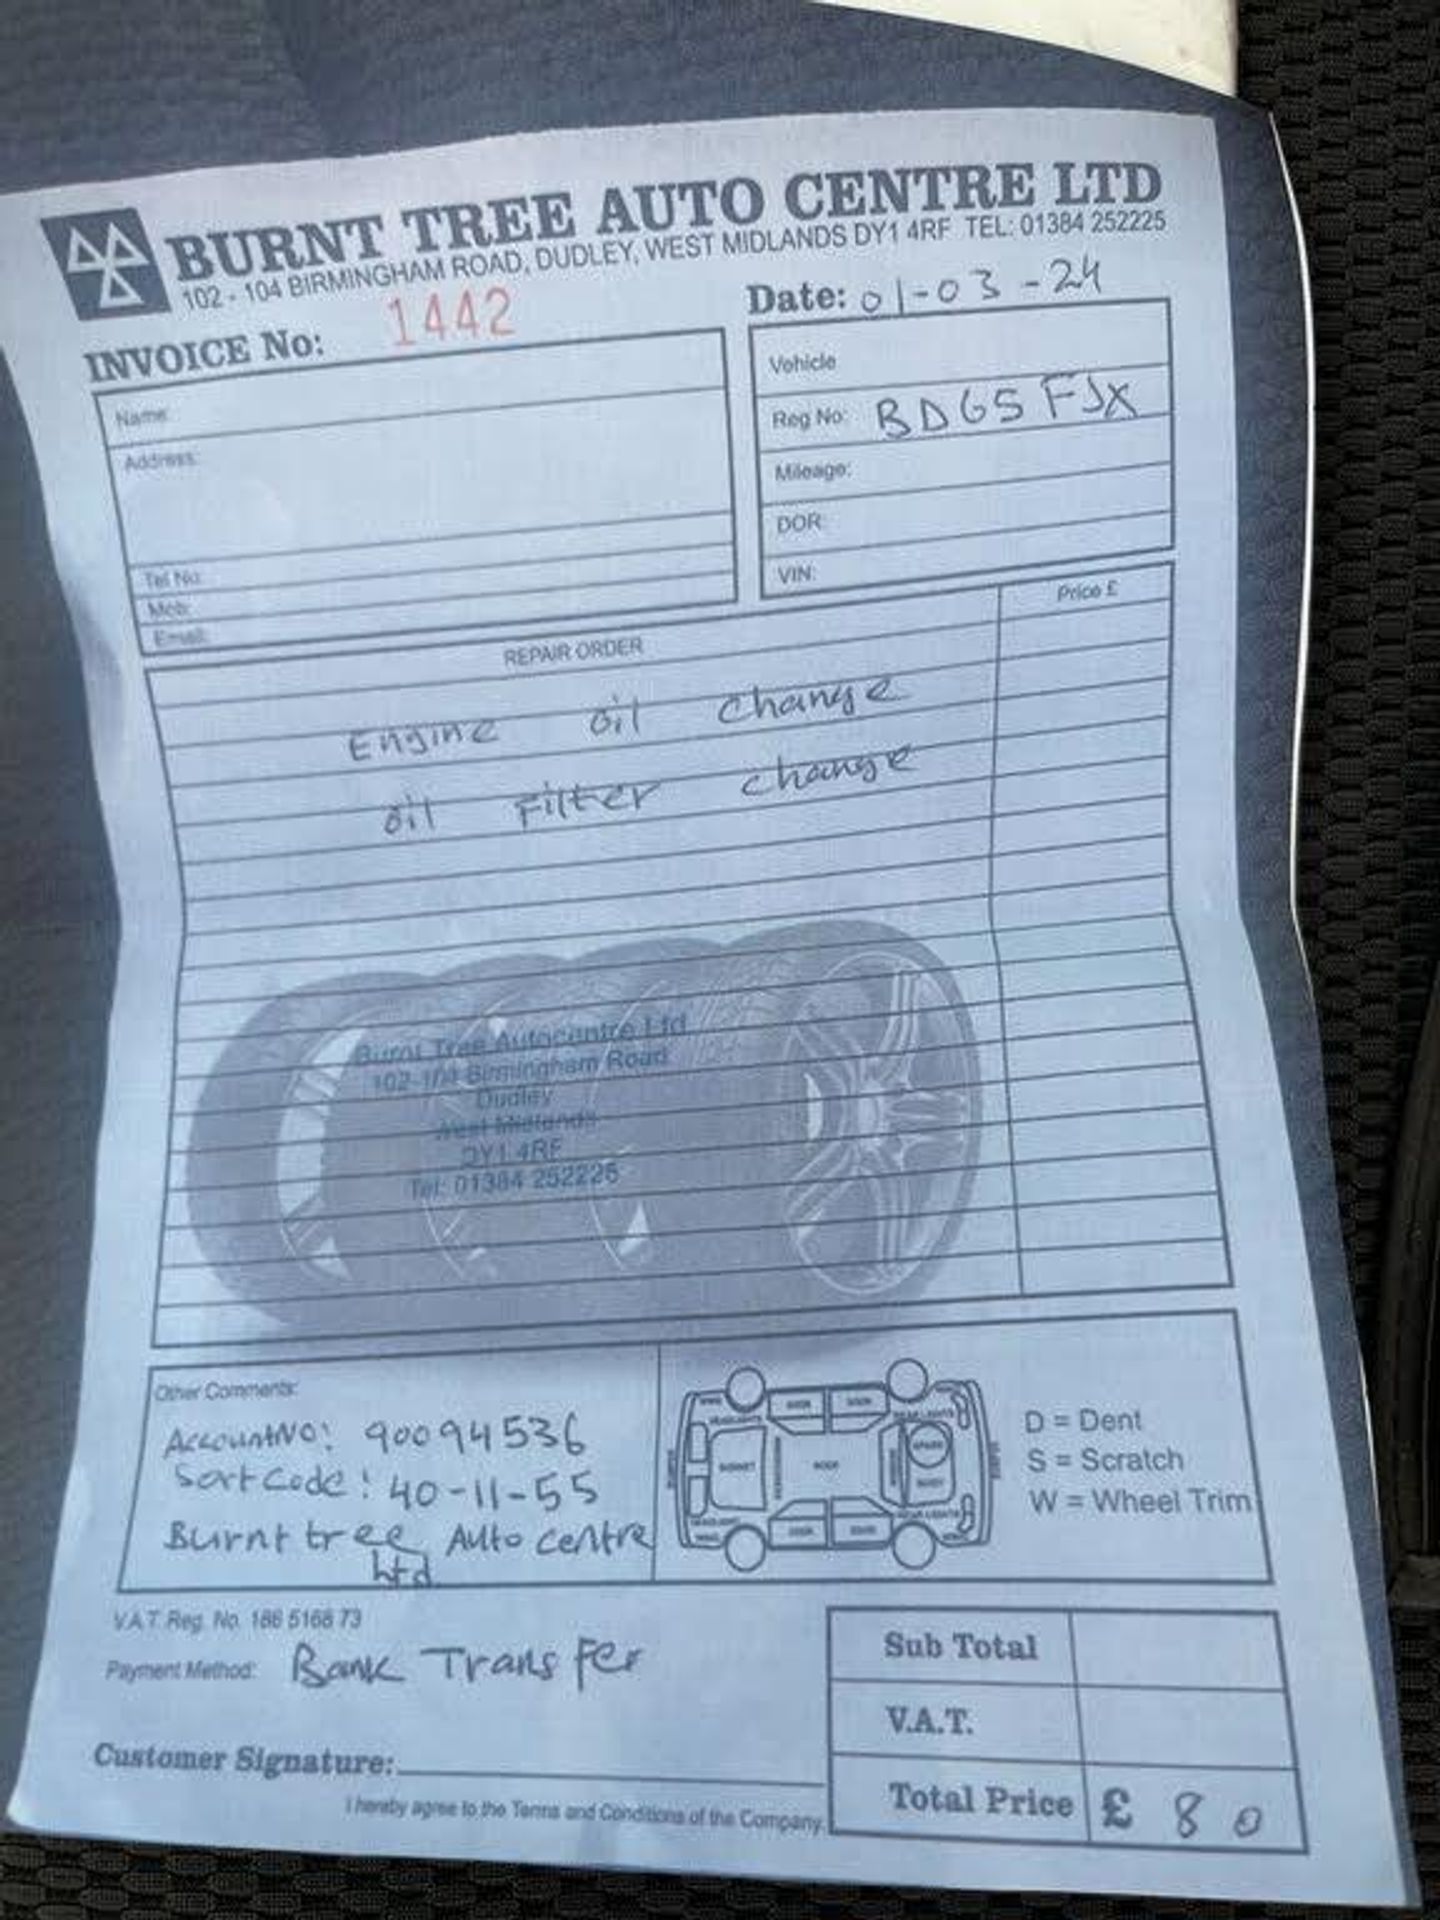 BURNT TREE AUTO CENTRE LTD
102 - 104 BIRMINGHAM ROAD, DUDLEY, WEST MIDLANDS DY1 4RF TEL: 01384 252225
INVOICE No: 1442
Date: 01-03-24
Name:
Address:
Tel No:
Mob:
Email:
Vehicle
Reg No: BD65 FJX
Mileage:
DOR:
VIN:
REPAIR ORDER
Price £
Engine oil change
oil Filter change
Burnt Tree Autocentre Ltd
102-104 Birmingham Road
Dudley
West Midlands
DY1 4RF
Tel: 01384 252225
Other Comments:
Account No: 90094536
Sort Code: 40-11-55
Burnt tree Auto centre
Ltd
BONNET
ROOF
SPARE
BOOT
D = Dent
S = Scratch
W = Wheel Trim
V.A.T. Reg. No. 186 5168 73
Payment Method: Bank Transfer
Customer Signature:
I hereby agree to the Terms and Conditions of the Company.
Sub Total
V.A.T.
Total Price £ 80